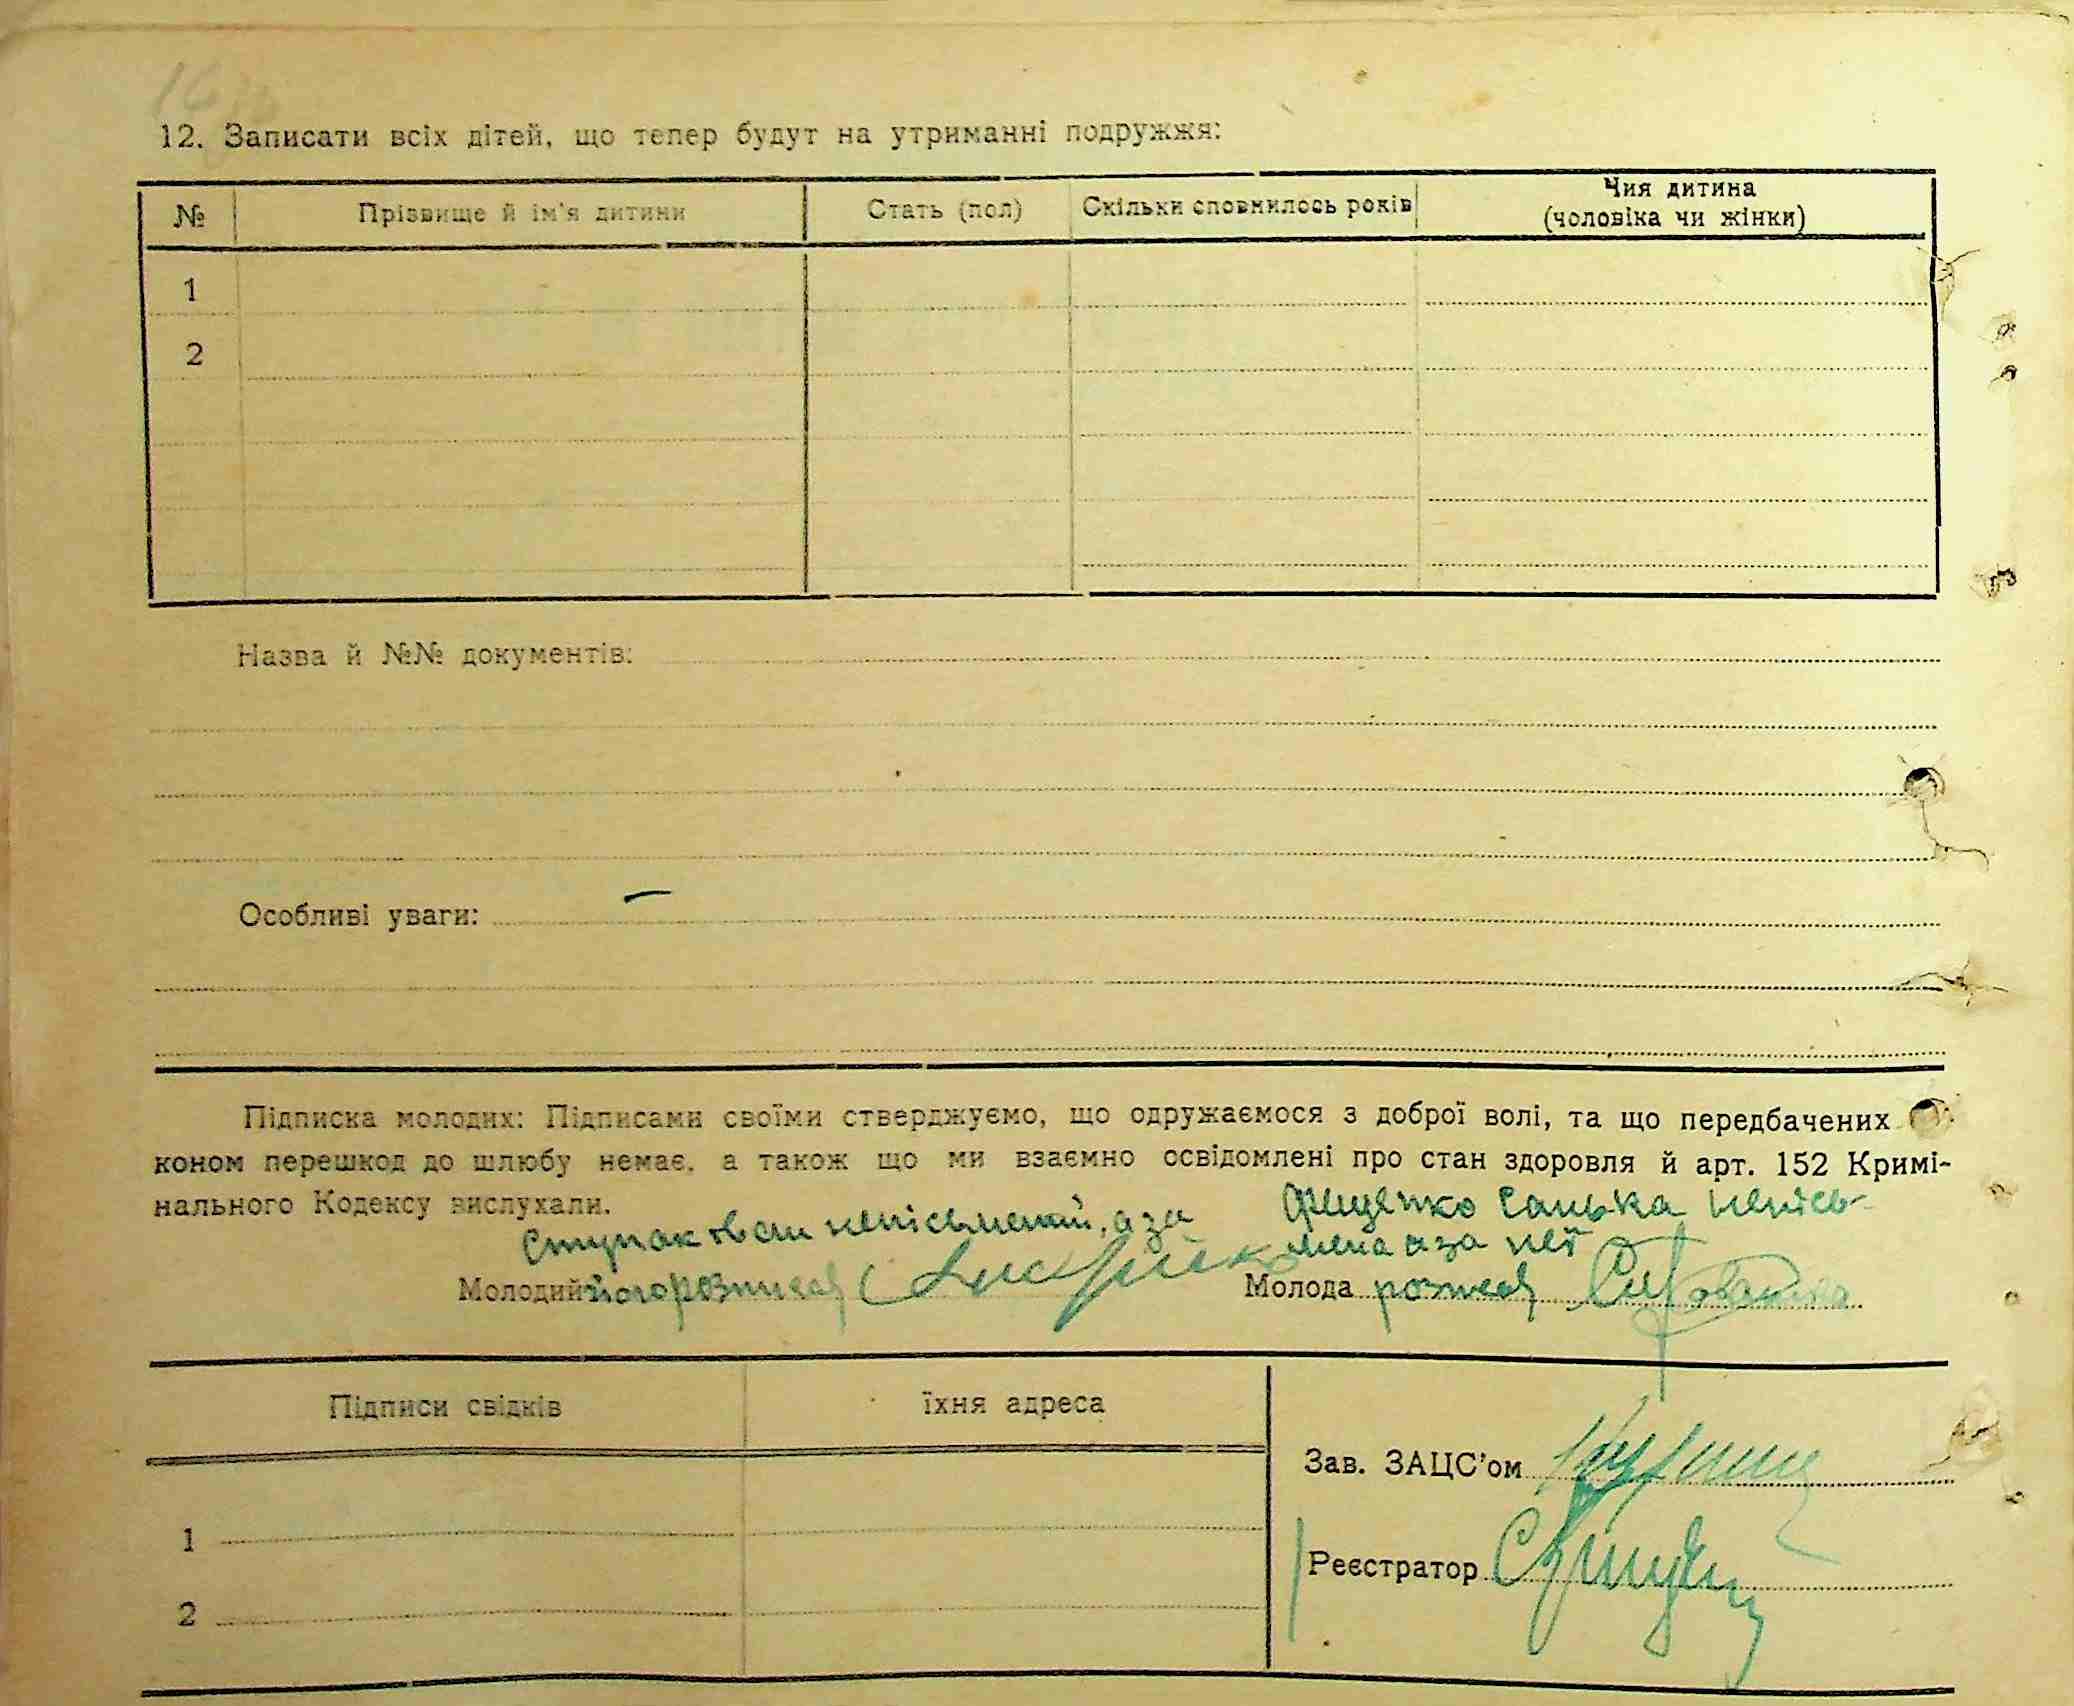 12. Записати всіх дітей, що тепер будут на утриманні подружжя:
№ Прізвище й ім'я дитини Стать (пол) Скільки сповнилось років Чия дитина
(чоловіка чи жінки)
1
2
Назва й №№ документів:
Особливі уваги: —
Підписка молодих: Підписами своїми стверджуємо, що одружаємося з доброї волі, та що передбачених
коном перешкод до шлюбу немає, а також що ми взаємно освідомлені про стан здоровля й арт. 152 Кримі-
нального Кодексу вислухали.
Ступак Іван неписьменний, а за
Санька неписьм-
мена а за неї
Молодий його розписався
Молода розписав
Підписи свідків їхня адреса
Зав. ЗАЦС'ом
1
Реєстратор
2